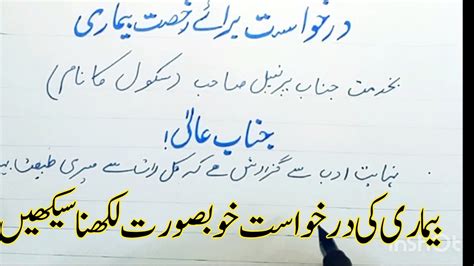 درخواست برائے رخصت بیماری
بخدمت جناب پرنسپل صاحب (سکول کا نام)
جناب عالی!
نہایت ادب سے گزارش ہے کہ کل رات سے میری طبیعت
بیماری کی درخواست خوبصورت لکھنا سیکھیں
InShot